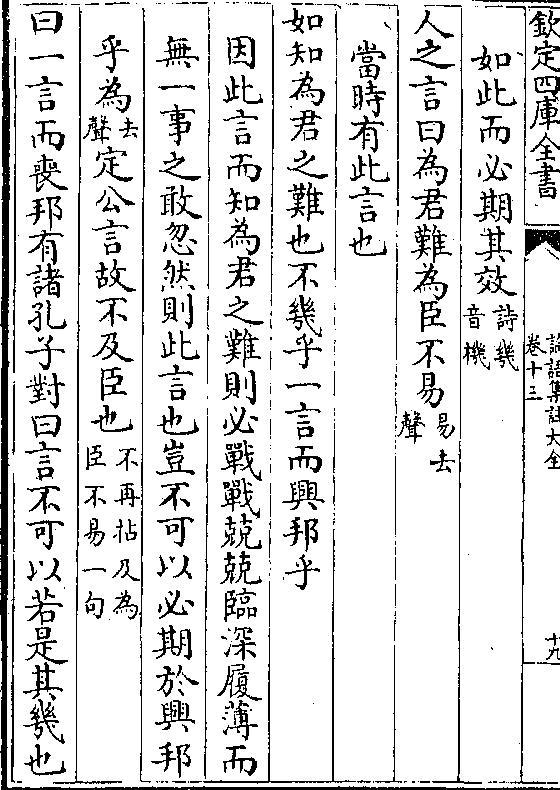 欽定四庫全書
論語集註大全
卷十三
十九
如此而必期其效詩幾音機
人之言曰為君難為臣不易易去聲
當時有此言也
如知為君之難也不幾乎一言而興邦乎
因此言而知為君之難則必戰戰兢兢臨深履薄而
無一事之敢忽然則此言也豈不可以必期於興邦
乎為去聲定公言故不及臣也不再拈及為臣不易一句
曰一言而喪邦有諸孔子對曰言不可以若是其幾也